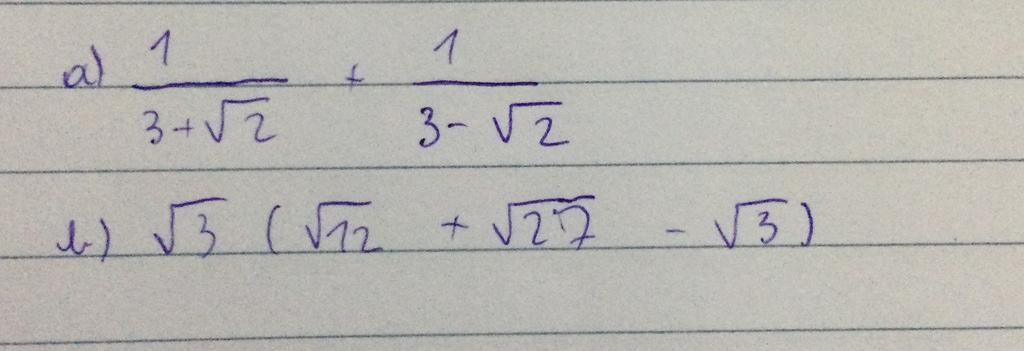 a) 1/(3+√2) + 1/(3-√2)
b) √3 (√12 + √27 - √3)